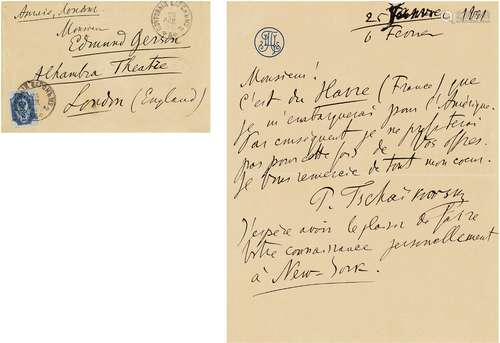 Англія, Лондонъ
Monsieur
Edmund Gerson
Alhambra Theatre
London (England)
25 1891
6
Monsieur!
C'est du Havre (France) que
je m'embarquerai pour l'Amérique.
Par conséquent je ne profiterai
pas pour cette fois de Vos offres.
Je Vous remercie de tout mon coeur.
P. Tschaïkovsky
J'espère avoir le plaisir de faire
Votre connaissance personnellement
à New-York.